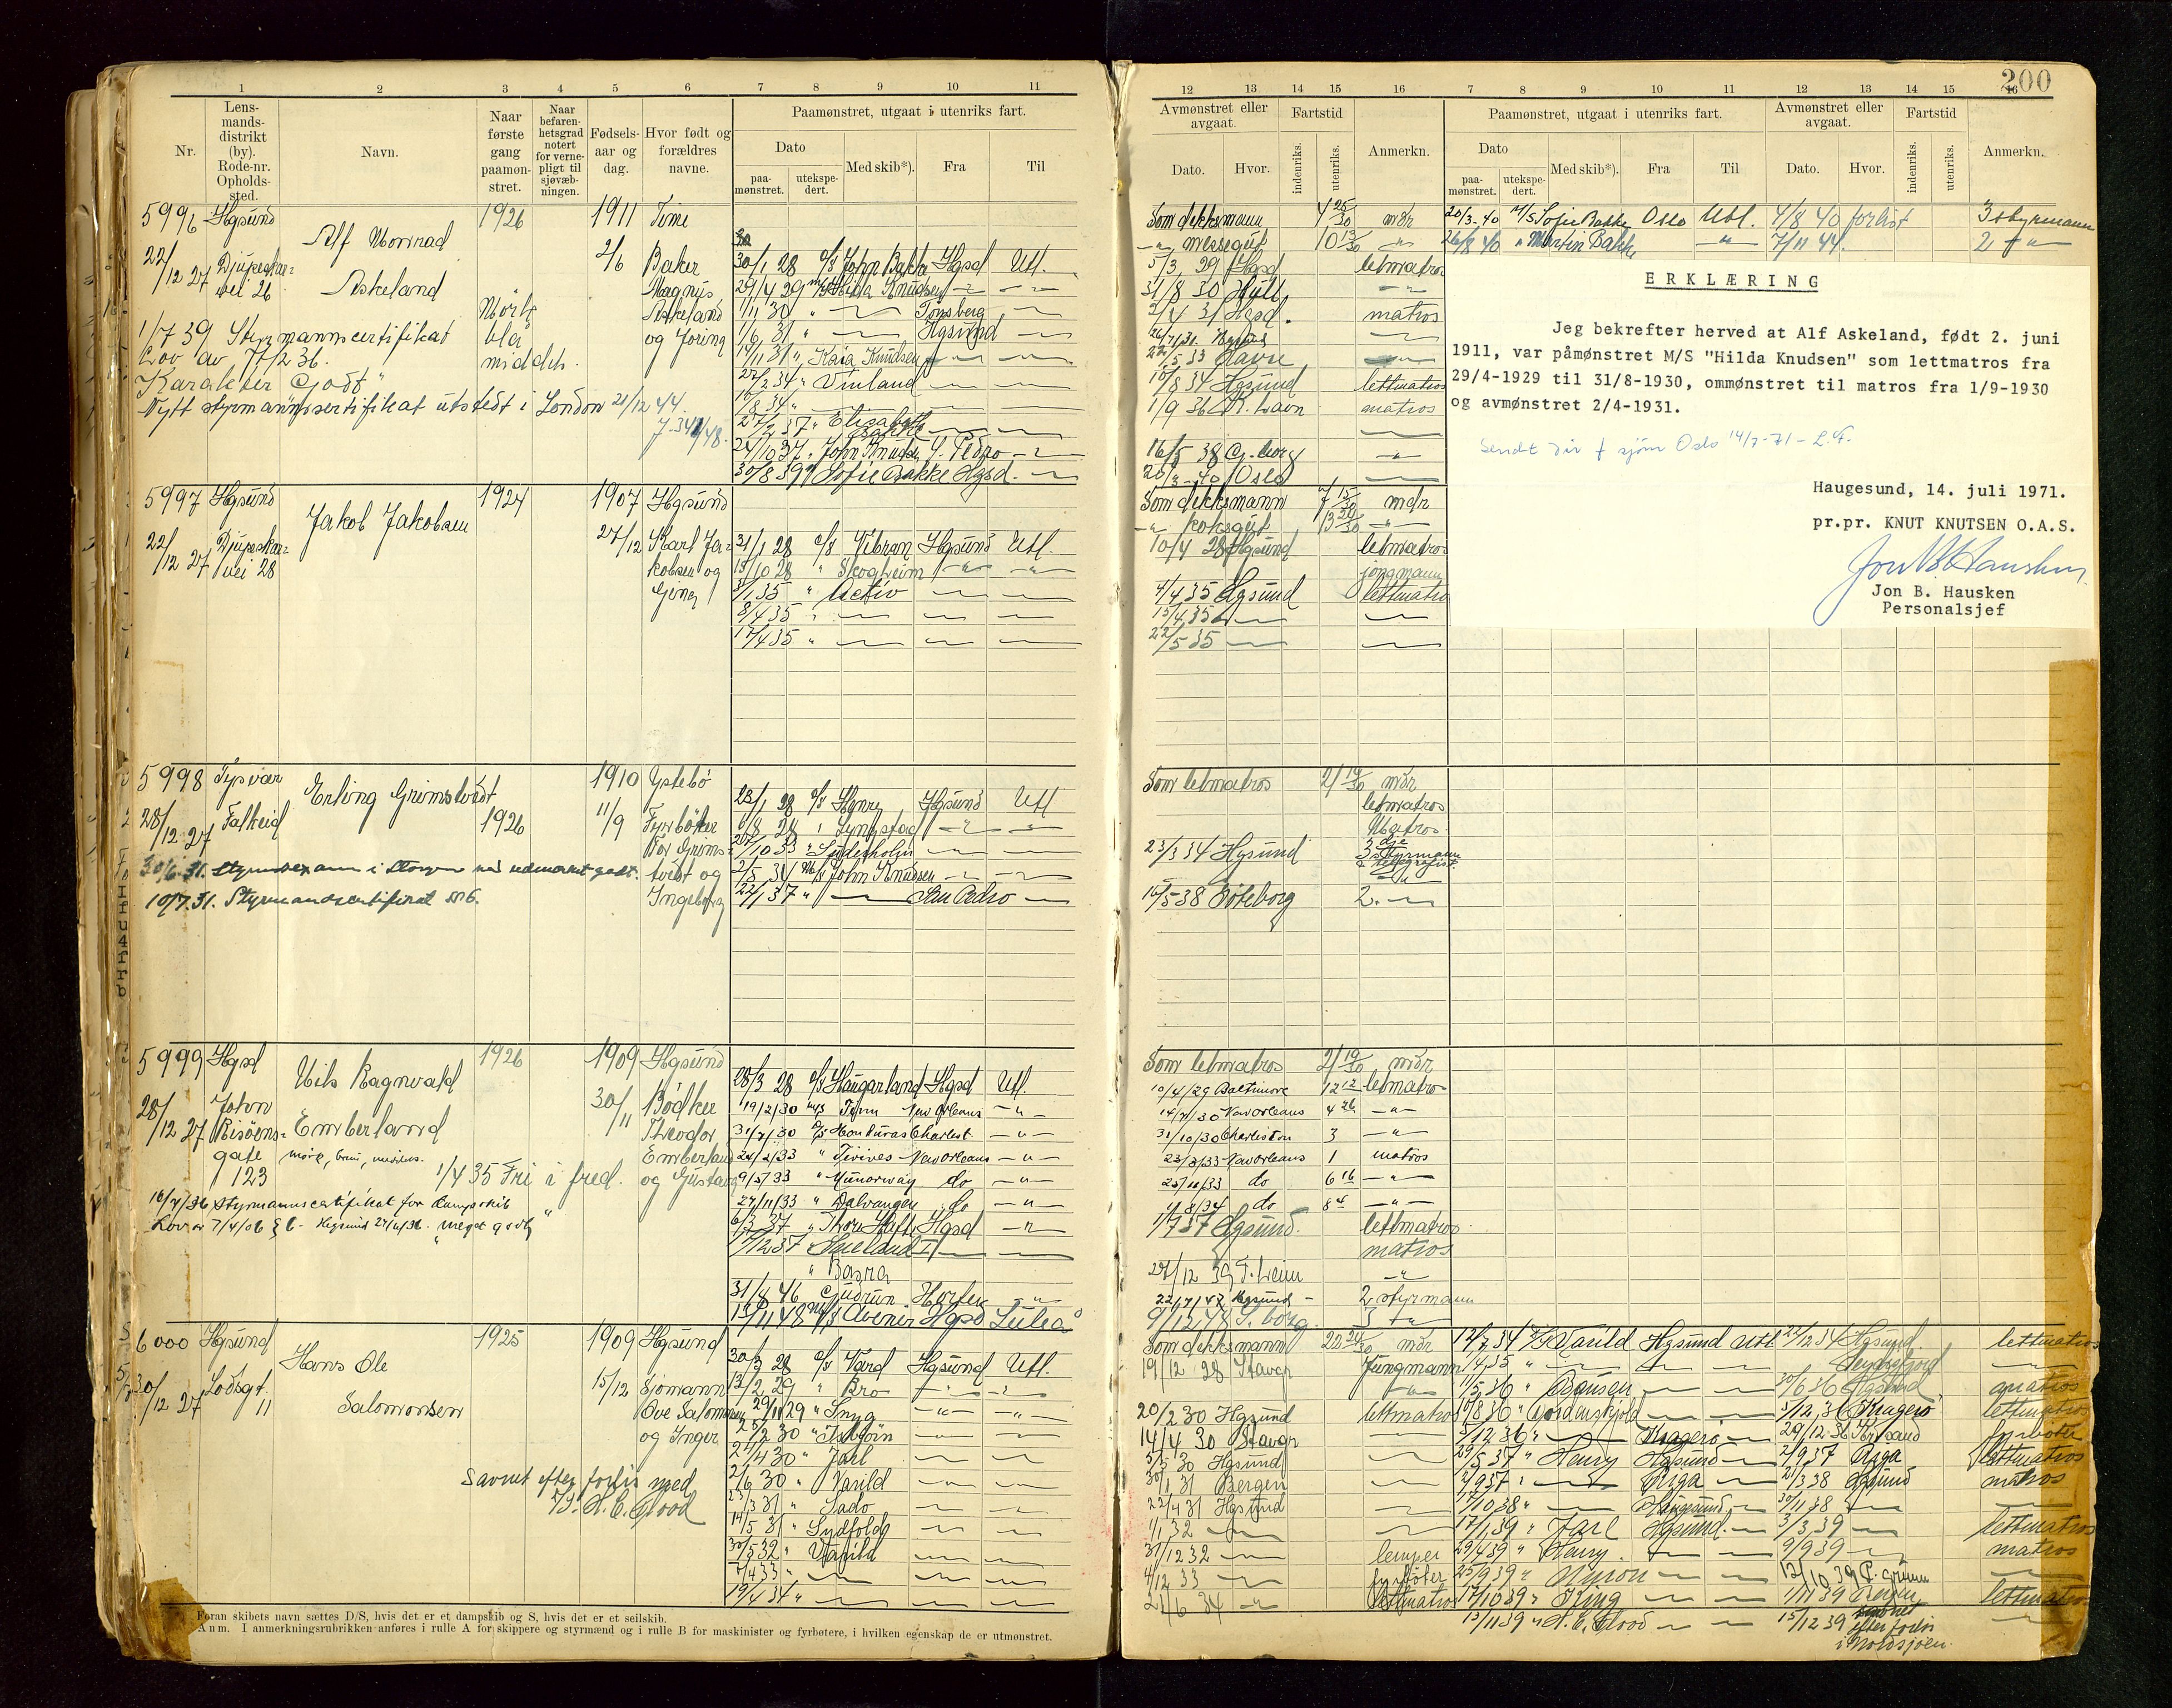 200
1 2 3 4 5 6 7 8 9 10 11
Nr.
Lens-
mands-
distrikt
(by).
Rode-nr.
Opholds-
sted.
Navn.
Naar
første
gang
paamøn-
stret.
Naar
befaren-
hetsgrad
notert
for verne-
pligt til
sjøvæb-
ningen.
Fødsels-
aar og
dag.
Hvor født og
forældres
navne.
Paamønstret, utgaat i utenriks fart.
Dato
paa-
mønstret.
utekspe-
dert.
Med skib*).
Fra
Til
5996 Hgsund 1926 1911 Time
Alf Konrad
22/12 27 Djupeskar- 2/6 Baker 30/1 28 John Bakke Hgsd Utl.
vei 26 Askeland Magnus 29/4 29 Hilda Knudsen
Askeland 1/11 30 " Tønsberg
1/7 39 Styrmannscertifikat blå og Joring 1/6 31 Hgsund
Lov av 7/2 36. middels. 14/11 31 " Kaia Knudsen
Karakter "Godt" 27/2 34 " Vinland
Nytt styrmannssertifikat utstedt i London 21/12 44.
27/2 37 " Elisabeth Bakke
24/10 37 " John Knudsen S. Pedro
30/8 39 Sofie Bakke Hgsd.
5997 Hgsund 1924 1907 Hgsund
Jakob Jakobsen
22/12 27 Djupeskar- 27/12 Karl Ja- 31/1 28 Vibran Hgsund Utl.
vei 28 kobsen og 15/10 28 " Skogheim
3/1 35 " Activ
8/4 35
17/4 35 "
5998 Tysvær 1910 Ystebø
Erling Grimstvedt
28/12 27 Falkeid 1926 11/9 Fyrbøter 23/1 28 Henry Hgsund Utl
6/8 28 " Lyngstad
Grims- 27/10 33 " Søderholm
30/6 31. Styrmandsexamen i Haugesund med udmerket godt. tvedt og 2/5 34 M/S John Knudsen
10/7 31. Styrmandscertifikat Ingeborg 22/1 37 " San Pedro
5999 Hgsd 1926 1909 Hgsund
Nils Ragnvald 28/3 28 Haugarland Hgsd Utl.
John 30/11 Bødker 19/2/30 Fern New Orleans
28/12 27 Risøens- Emberland Theodor 31/7/30 Honduras Charlest.
gate Emberland 24/2/33 " Tivives New Orleans
123 1/4 35 Fri i fred. og Gustava 9/5/33 " Munorway do
16/7/36 Styrmannscertifikat for dampskib 27/11/33 " Dalvangen do
Lov av 7/4/06 § 6 - Hgsund 27/6/36. "Meget godt" 6/3 37 " Thora Hgsd
17/12 37 " Sneland I
" Basra
31/8 46 " Gudrun Horten
15/11 48 M/S Avenir Hgsd Luleå
6000 Hgsund 1925 1909 Hgsund
Hans Ole 30/3 28 Vard Hgsund Utl.
30/12 27 Lodsgt. 15/12 Sjømann 13/2 29 " Bro
11 Salomonsen Ove Salomonsen 29/11 29 " Snyg
og Inger 20/2 30 " Asbjørn
24/4 30 " Jarl
Savnet efter forlis med 2/6 30 " Varild
D/S. H. C. Flood 23/3 31 " Sado
14/5 31 " Sydfold
30/5 32 " Varild
7/4 33 "
19/4 34 "
Foran skibets navn sættes D/S, hvis det er et dampskib og S, hvis det er et seilskib.
Anm. I anmerkningsrubrikken anføres i rulle A for skippere og styrmænd og i rulle B for maskinister og fyrbøtere, i hvilken egenskap de er utmønstret.
12 13 14 15 16 7 8 9 10 11 12 13 14 15 16
Avmønstret eller
avgaat.
Dato.
Hvor.
Fartstid
indenriks.
utenriks.
Anmerkn.
Paamønstret, utgaat i utenriks fart.
Dato
paa-
mønstret.
utekspe-
dert.
Med skib*).
Fra
Til
Avmønstret eller
avgaat.
Dato.
Hvor.
Fartstid
indenriks.
utenriks.
Anmerkn.
Som dekksmann 4 25/30 mdr 20/3-40 M/S Sofie Bakke Oslo Utl. 4/8 40 forlist 3 styrmann
messegut 10 13/30 26/8 40 " Martin Bakke 7/11 44. 2
5/3 29 Hgsd letmatros
31/8 30 Hull
2/4 31 Hgsd. matros
5 33 Havre
18/8 34 Hgsund lettmatros
1/9 36 K. havn matros
16/5 38 G. borg
20/3-40 Oslo
ERKLÆRING
Jeg bekrefter herved at Alf Askeland, født 2. juni
1911, var påmønstret M/S "Hilda Knudsen" som lettmatros fra
29/4-1929 til 31/8-1930, ommønstret til matros fra 1/9-1930
og avmønstret 2/4-1931.
Sendt Dir f sjøm Oslo 14/7-71 - L.F.
Haugesund, 14. juli 1971.
pr.pr. KNUT KNUTSEN O.A.S.
Jon B. Hausken
Jon B. Hausken
Personalsjef
Som dekksmann 7 15/30 mdr
koksgut 13 20/30
10/4 28 Hgsund letmatros
jongmann
4/4 35 Hgsund lettmatros
15/4 35
22/5 35
Som letmatros 21 19/30 mdr
letmatros
Matros
23/3 34 Hgsund 3 styrmann
telegrafist
16/5-38 Gøteborg 2.
Som letmatros 21 19/30 mdr
10/4/29 Baltimore 12 12 letmatros
14/7/30 New Orleans 4 26
31/10/30 Charleston 3
23/3/33 New Orleans 1 matros
25/11/33 do 6 16
4/8/34 do 8
1/7 37 Hgsund. lettmatros
matros
27/12 39 T. heim
22/7/47 Hgsund 2 styrmann
9/12 48 S. borg. 3
Som dekksmann 22 24/30 mdr 12/7 34 Varild Hgsund Utl 22/12 34 Hgsund. lettmatros
19/12 28 Stavgr Jungmann 1/4 35 " Seydisfjord
1/5 36 " 30/6 36 Hgsund matros
20/2 30 Hgsund lettmatros 10/8 36 " Tordenskjold 5/12 36 Kragerø lettmatros
14/4 30 Stavgr 5/12 36 " Kragerø 29/12 36 Kr.sand fyrbøter
5/5 30 Hgsund 29/5 37 " Henry Hgsund 2/9 37 Riga lettmatros
30/1 31 Bergen 2/9 37 " Riga 21/3 38 Hgsund matros
22/4 31 Hgsund 17/10 38 " Haugesund 30/11 38
1/1 32 17/1 39 " Jarl Hgsund. 3/3 39 lettmatros
31/12 32 lemper 29/4 39 " Henry. 9/9 39 matros
4/12 33 fyrbøter 25/9 39 " Hyron 12/10 39
21/6 34 lettmatros 17/10 39 " Kring 1/11 39 Bergen lettmatros
13/11 39 " H. C. Flood 15/12 39 savnet
efter forlis
i Nordsjøen.